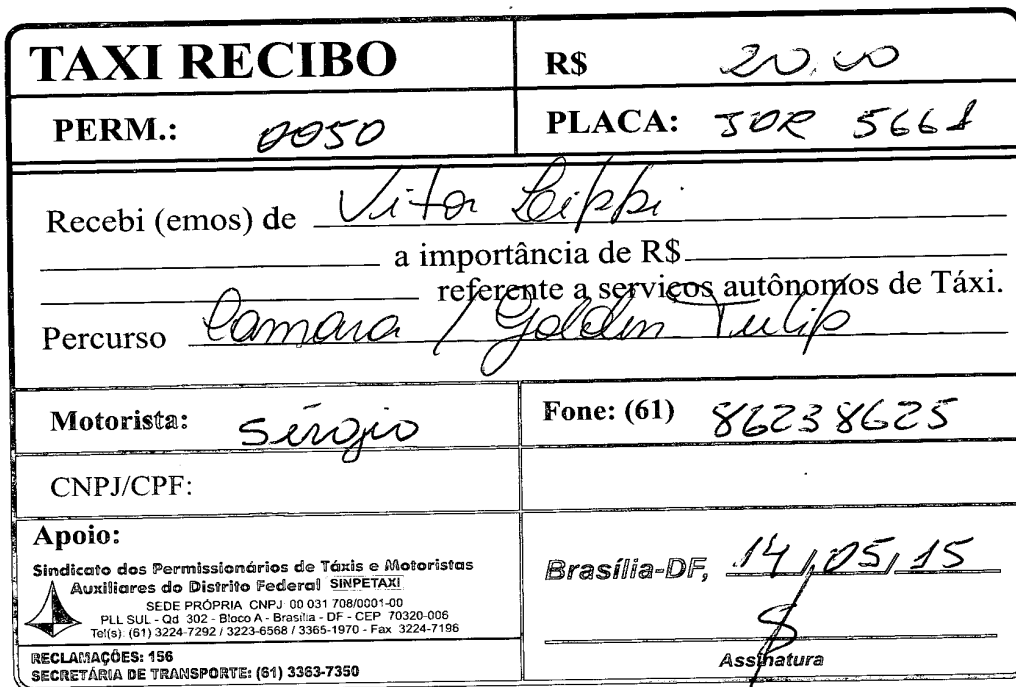 TAXI RECIBO
R$ 20.00
PERM.: 0050
PLACA: JOR 5661
Recebi (emos) de Vitor Lippi
a importância de R$
referente a serviços autônomos de Táxi.
Percurso Camara / Golden Tulip
Motorista: Sérgio
Fone: (61) 86238625
CNPJ/CPF:
Apoio:
Sindicato dos Permissionários de Táxis e Motoristas
Auxiliares do Distrito Federal SINPETAXI
SEDE PRÓPRIA CNPJ 00 031 708/0001-00
PLL SUL - Qd 302 - Bloco A - Brasília - DF - CEP 70320-006
Tel(s) (61) 3224-7292 / 3223-6568 / 3365-1970 - Fax 3224-7196
RECLAMAÇÕES: 156
SECRETÁRIA DE TRANSPORTE: (61) 3363-7350
Brasília-DF, 14/05/15
Assinatura